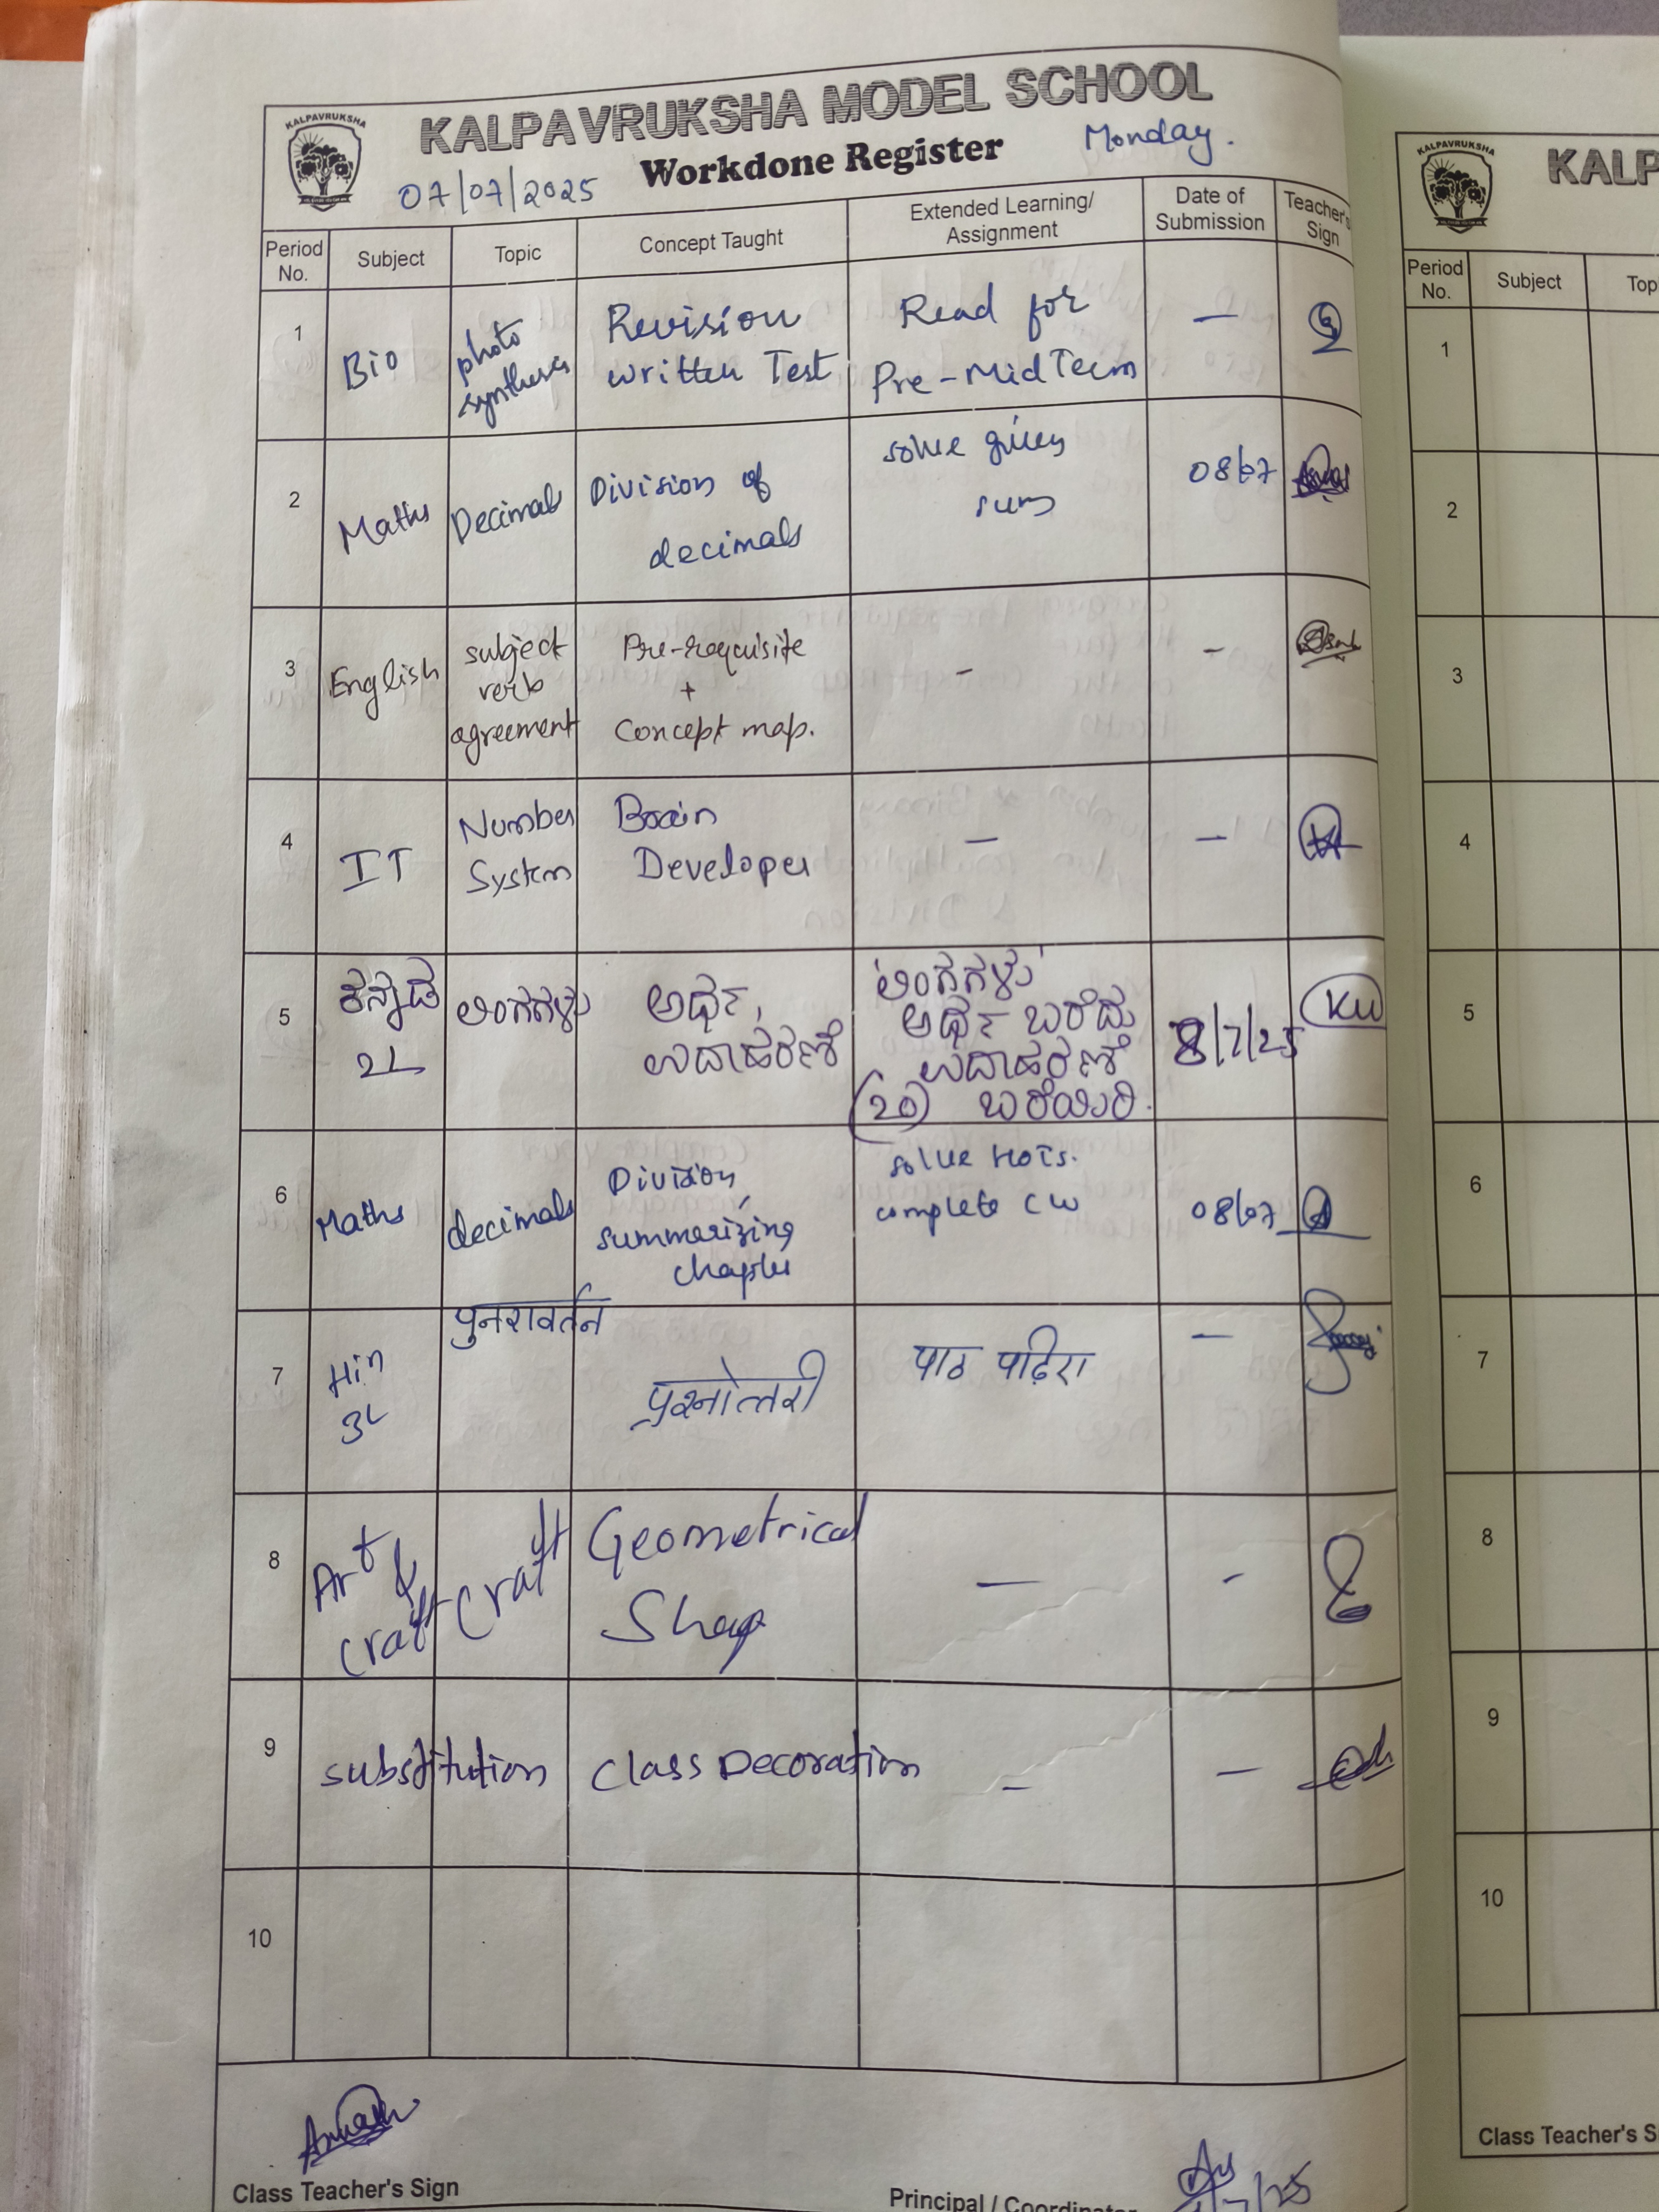 KALPAVRUKSHA
KALPAVRUKSHA MODEL SCHOOL
Workdone Register
Monday.
07/07/2025
Period No.
Subject
Topic
Concept Taught
Extended Learning/
Assignment
Date of
Submission
Teacher's
Sign
1
Bio
photo
synthesis
Revision
written Test
Read for
Pre-Mid Term
—
2
Maths
Decimals
Division of
decimals
solve given
sums
08/07
3
English
subject
verb
agreement
Pre-requisite
+
Concept map.
-
-
4
IT
Number
System
Brain
Developer
—
—
5
ಕನ್ನಡ
2L
ಲಿಂಗಗಳು
ಅರ್ಥ,
ಉದಾಹರಣೆ
'ಲಿಂಗಗಳು'
ಅರ್ಥ ಬರೆದು
ಉದಾಹರಣೆ
(20) ಬರೆಯಿರಿ.
8/7/25
KU
6
Maths
decimals
Division,
summarizing
chapter
solve HOTS.
complete CW
08/07
7
Hin
3L
पुनरावर्तन
प्रश्नोत्तरी
पाठ पढ़िए
—
8
Art &
craft
Craft
Geometrical
Shap
—
-
9
substitution
Class Decoration
—
—
10
Class Teacher's Sign
Principal / Coordinator
KALPAVRUKSHA
KALP
Period
No.
Subject
Top
1
2
3
4
5
6
7
8
9
10
Class Teacher's S